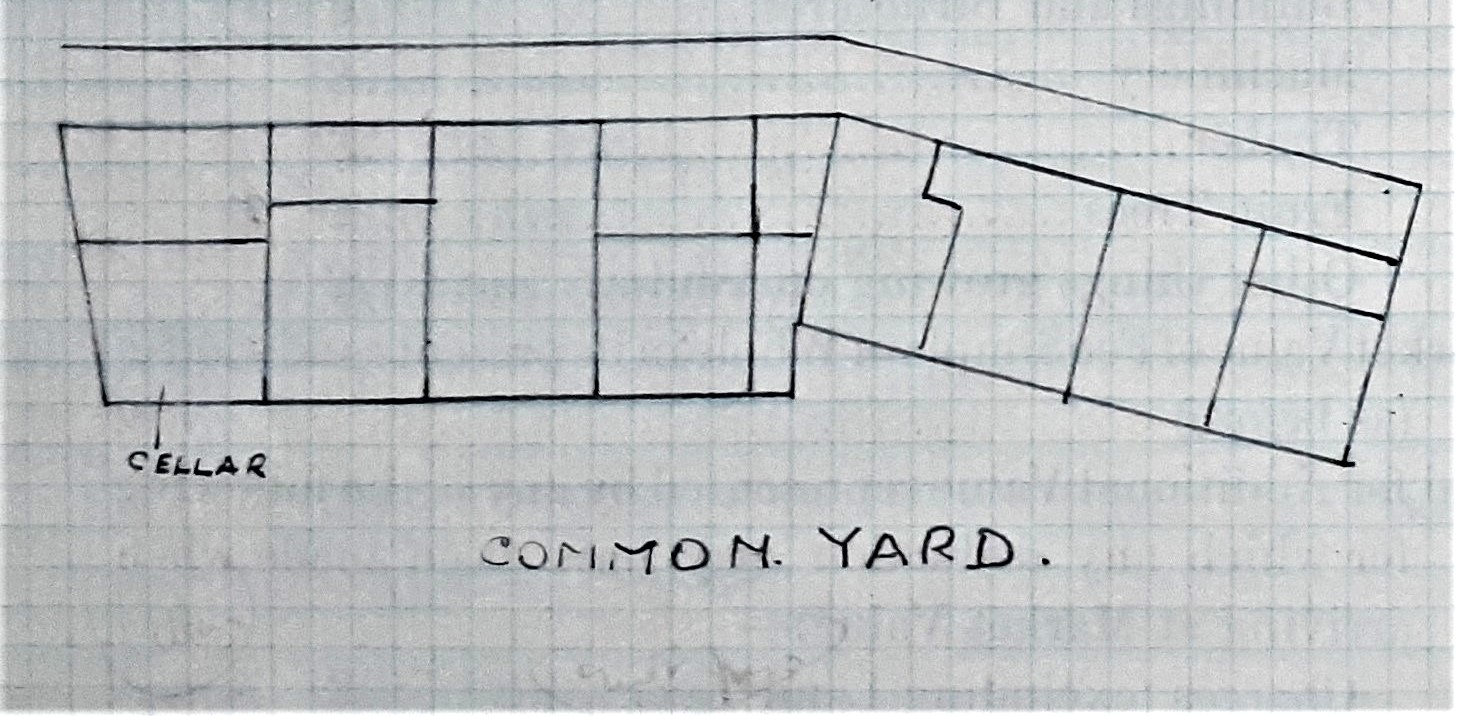 CELLAR
COMMON. YARD.